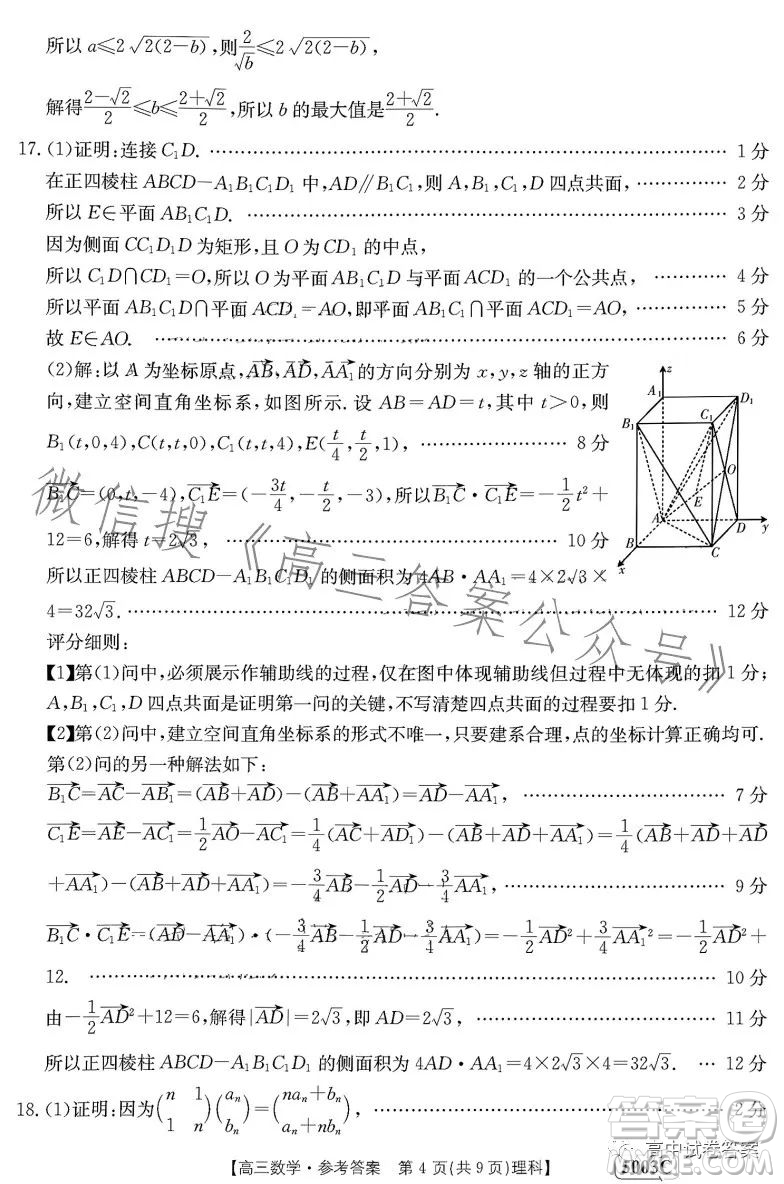 所以 a≤2√2(2−b),则2/√b≤2√2(2−b),
解得(2−√2)/2≤b≤(2+√2)/2,所以 b 的最大值是(2+√2)/2.
17.(1)证明:连接 C₁D. …… 1 分
在正四棱柱 ABCD−A₁B₁C₁D₁ 中,AD∥B₁C₁,则 A,B₁,C₁,D 四点共面, …… 2 分
所以 E∈平面 AB₁C₁D. …… 3 分
因为侧面 CC₁D₁D 为矩形,且 O 为 CD₁ 的中点,
所以 C₁D∩CD₁=O,所以 O 为平面 AB₁C₁D 与平面 ACD₁ 的一个公共点, …… 4 分
所以平面 AB₁C₁D∩平面 ACD₁=AO,即平面 AB₁C₁∩平面 ACD₁=AO, …… 5 分
故 E∈AO. …… 6 分
(2)解:以 A 为坐标原点,AB→,AD→,AA₁→的方向分别为 x,y,z 轴的正方
向,建立空间直角坐标系,如图所示.设 AB=AD=t,其中 t>0,则
B₁(t,0,4),C(t,t,0),C₁(t,t,4),E(t/4,t/2,1), …… 8 分
B₁C→=(0,t,−4),C₁E→=(−3t/4,−t/2,−3),所以B₁C→·C₁E→=−1/2t²+
12=6,解得 t=2√3, …… 10 分
所以正四棱柱 ABCD−A₁B₁C₁D₁ 的侧面积为 4AB·AA₁=4×2√3×
4=32√3. …… 12 分
z
A₁
D₁
B₁
C₁
O
E
A
D
y
B
C
x
评分细则:
【1】第(1)问中,必须展示作辅助线的过程,仅在图中体现辅助线但过程中无体现的扣 1 分;
A,B₁,C₁,D 四点共面是证明第一问的关键,不写清楚四点共面的过程要扣 1 分.
【2】第(2)问中,建立空间直角坐标系的形式不唯一,只要建系合理,点的坐标计算正确均可.
第(2)问的另一种解法如下:
B₁C→=AC→−AB₁→=(AB→+AD→)−(AB→+AA₁→)=AD→−AA₁→, …… 7 分
C₁E→=AE→−AC₁→=1/2AO→−AC₁→=1/4(AC→+AD₁→)−(AB→+AD→+AA₁→)=1/4(AB→+AD→+AD→
+AA₁→)−(AB→+AD→+AA₁→)=−3/4AB→−1/2AD→−3/4AA₁→, …… 9 分
B₁C→·C₁E→=(AD→−AA₁→)·(−3/4AB→−1/2AD→−3/4AA₁→)=−1/2AD→²+3/4AA₁→²=−1/2AD→²+
12. …… 10 分
由−1/2AD→²+12=6,解得|AD→|=2√3,即 AD=2√3, …… 11 分
所以正四棱柱 ABCD−A₁B₁C₁D₁ 的侧面积为 4AD·AA₁=4×2√3×4=32√3. … 12 分
18.(1)证明:因为(n 1; 1 n)(aₙ; bₙ)=(naₙ+bₙ; aₙ+nbₙ), …… 2 分
【高三数学·参考答案 第 4 页(共 9 页)理科】
5003C
微信搜《高三答案公众号》
答案圈
高中试卷答案